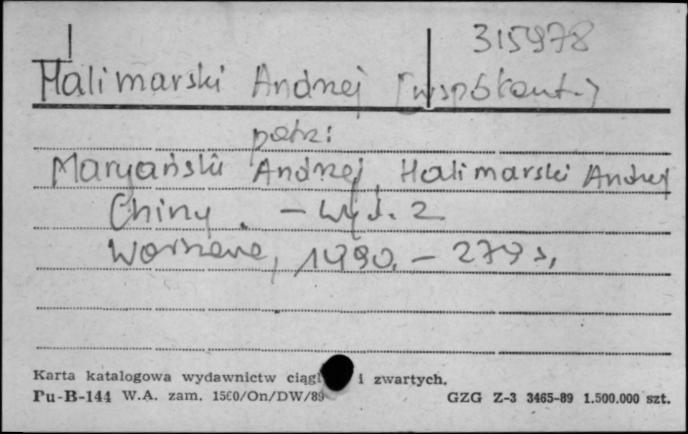 315978
Halimarski Andrzej [współaut.]
patrz:
Maryański Andrzej, Halimarski Andrzej
Chiny. - Wyd. 2
Warszawa, 1990. - 279 s.
Karta katalogowa wydawnictw ciągł i zwartych.
Pu-B-144 W.A. zam. 1560/On/DW/89 GZG Z-3 3465-89 1.500.000 szt.